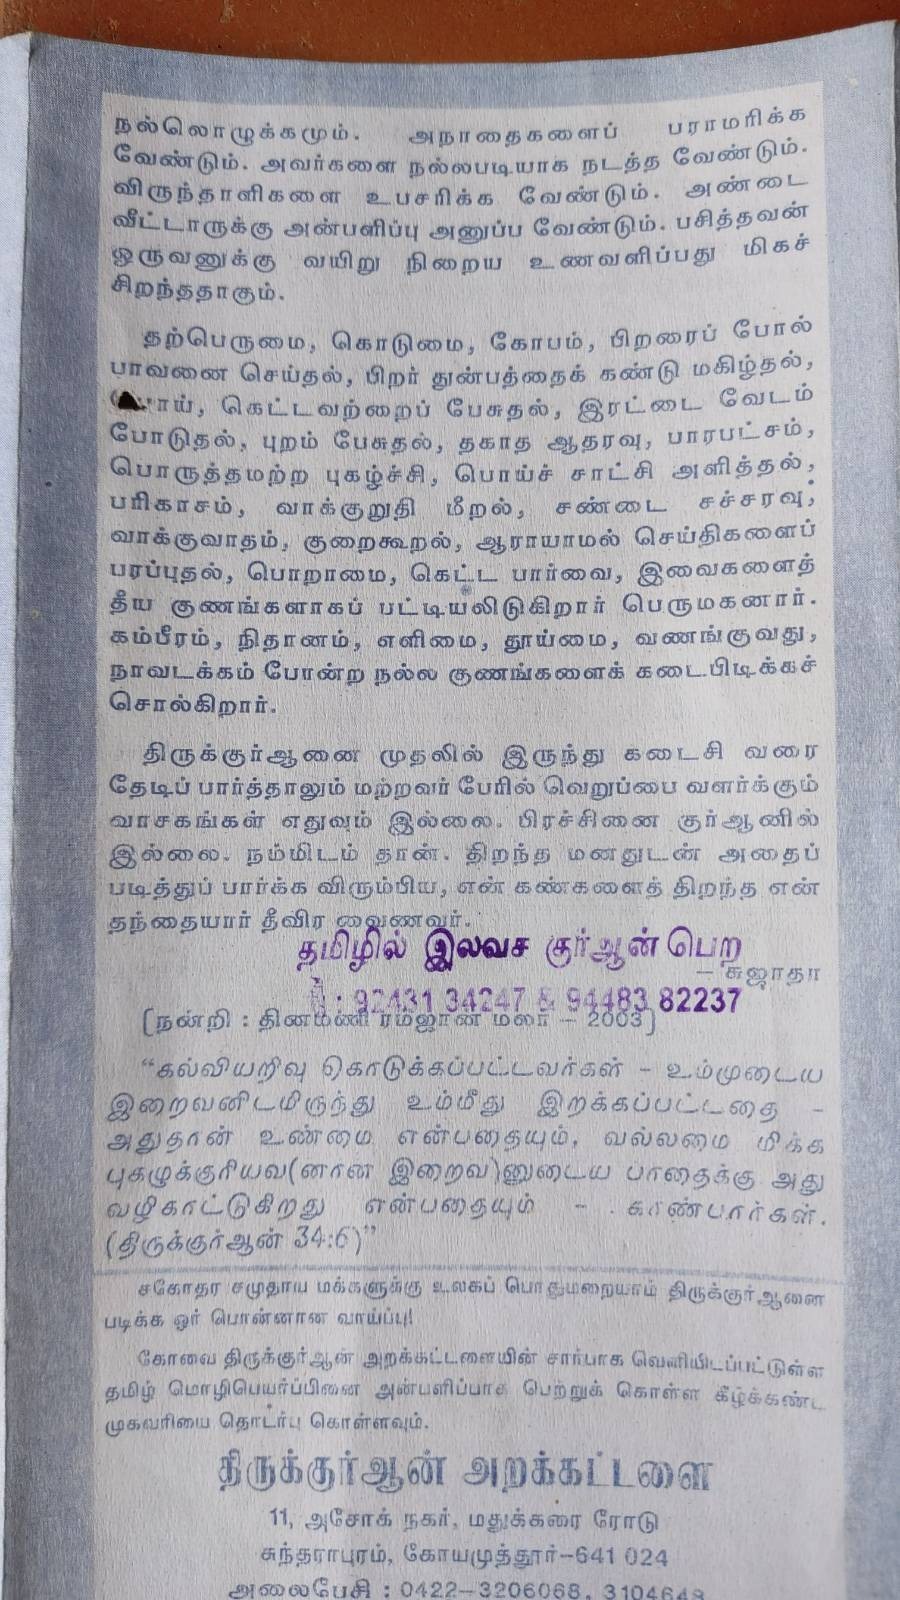 நல்லொழுக்கமும். அநாதைகளைப் பராமரிக்க
வேண்டும். அவர்களை நல்லபடியாக நடத்த வேண்டும்.
விருந்தாளிகளை உபசரிக்க வேண்டும். அண்டை
வீட்டாருக்கு அன்பளிப்பு அனுப்ப வேண்டும். பசித்தவன்
ஒருவனுக்கு வயிறு நிறைய உணவளிப்பது மிகச்
சிறந்ததாகும்.
தற்பெருமை, கொடுமை, கோபம், பிறரைப் போல்
பாவனை செய்தல், பிறர் துன்பத்தைக் கண்டு மகிழ்தல்,
கெட்டவற்றைப் பேசுதல், இரட்டை வேடம்
போடுதல், புறம் பேசுதல், தகாத ஆதரவு, பாரபட்சம்,
பொருத்தமற்ற புகழ்ச்சி, பொய்ச் சாட்சி அளித்தல்,
பரிகாசம், வாக்குறுதி மீறல், சண்டை சச்சரவு,
வாக்குவாதம், குறைகூறல், ஆராயாமல் செய்திகளைப்
பரப்புதல், பொறாமை, கெட்ட பார்வை, இவைகளைத்
தீய குணங்களாகப் பட்டியலிடுகிறார் பெருமகனார்.
கம்பீரம், நிதானம், எளிமை, தூய்மை, வணங்குவது,
நாவடக்கம் போன்ற நல்ல குணங்களைக் கடைபிடிக்கச்
சொல்கிறார்.
திருக்குர்ஆனை முதலில் இருந்து கடைசி வரை
தேடிப் பார்த்தாலும் மற்றவர் பேரில் வெறுப்பை வளர்க்கும்
வாசகங்கள் எதுவும் இல்லை. பிரச்சினை குர்ஆனில்
இல்லை. நம்மிடம் தான். திறந்த மனதுடன் அதைப்
படித்துப் பார்க்க விரும்பிய, என் கண்களைத் திறந்த என்
தந்தையார் தீவிர வைணவர்.
தமிழில் இலவச குர்ஆன் பெற
– சுஜாதா
: 92431 34247 & 94483 82237
(நன்றி : தினமணி ரம்ஜான் மலர் – 2003)
“கல்வியறிவு கொடுக்கப்பட்டவர்கள் - உம்முடைய
இறைவனிடமிருந்து உம்மீது இறக்கப்பட்டதை -
அதுதான் உண்மை என்பதையும், வல்லமை மிக்க
புகழுக்குரியவ(னான இறைவ)னுடைய பாதைக்கு அது
வழிகாட்டுகிறது என்பதையும் - காண்பார்கள்.
(திருக்குர்ஆன் 34:6)”
சகோதர சமுதாய மக்களுக்கு உலகப் பொதுமறையாம் திருக்குர்ஆனை
படிக்க ஓர் பொன்னான வாய்ப்பு!
கோவை திருக்குர்ஆன் அறக்கட்டளையின் சார்பாக வெளியிடப்பட்டுள்ள
தமிழ் மொழிபெயர்ப்பினை அன்பளிப்பாக பெற்றுக் கொள்ள கீழ்க்கண்ட
முகவரியை தொடர்பு கொள்ளவும்.
திருக்குர்ஆன் அறக்கட்டளை
11, அசோக் நகர், மதுக்கரை ரோடு
சுந்தராபுரம், கோயமுத்தூர்–641 024
அலைபேசி : 0422–3206068, 3104648